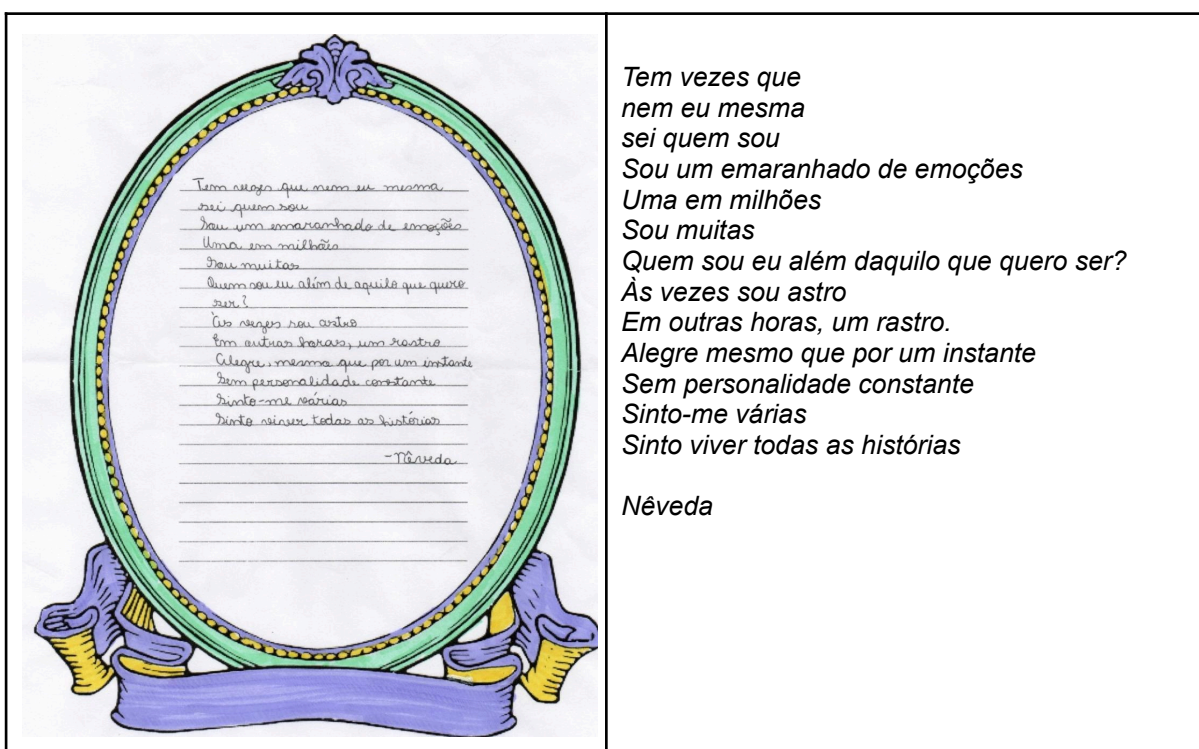 Tem vezes que nem eu mesma
sei quem sou
Sou um emaranhado de emoções
Uma em milhões
Sou muitas
Quem sou eu além de aquilo que quero
ser?
Às vezes sou astro
Em outras horas, um rastro
Alegre, mesmo que por um instante
Sem personalidade constante
Sinto-me várias
Sinto viver todas as histórias
-Nêveda
Tem vezes que
nem eu mesma
sei quem sou
Sou um emaranhado de emoções
Uma em milhões
Sou muitas
Quem sou eu além daquilo que quero ser?
Às vezes sou astro
Em outras horas, um rastro.
Alegre mesmo que por um instante
Sem personalidade constante
Sinto-me várias
Sinto viver todas as histórias
Nêveda